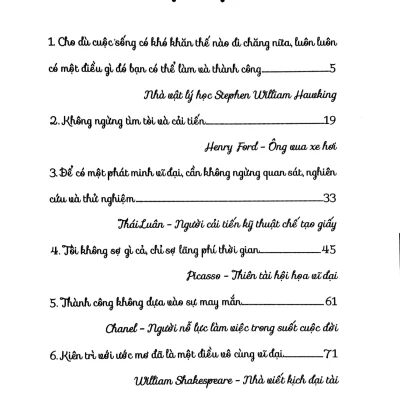 1. Cho dù cuộc sống có khó khăn thế nào đi chăng nữa, luôn luôn
có một điều gì đó bạn có thể làm và thành công 5
Nhà vật lý học Stephen William Hawking
2. Không ngừng tìm tòi và cải tiến 19
Henry Ford - Ông vua xe hơi
3. Để có một phát minh vĩ đại, cần không ngừng quan sát, nghiên
cứu và thử nghiệm 33
Thái Luân - Người cải tiến kỹ thuật chế tạo giấy
4. Tôi không sợ gì cả, chỉ sợ lãng phí thời gian 45
Picasso - Thiên tài hội họa vĩ đại
5. Thành công không dựa vào sự may mắn 61
Chanel - Người nỗ lực làm việc trong suốt cuộc đời
6. Kiên trì với ước mơ đã là một điều vô cùng vĩ đại 71
William Shakespeare - Nhà viết kịch đại tài